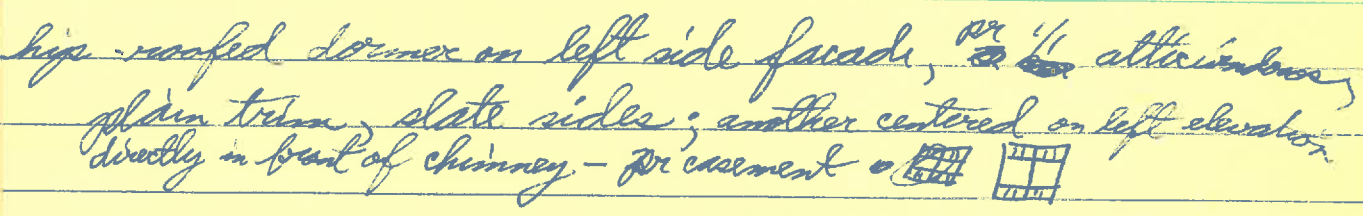 hip-roofed dormer on left side facade, pr 1/1 attic windows,
plain trim, slate sides; another centered on left elevation
directly in front of chimney - pr casement